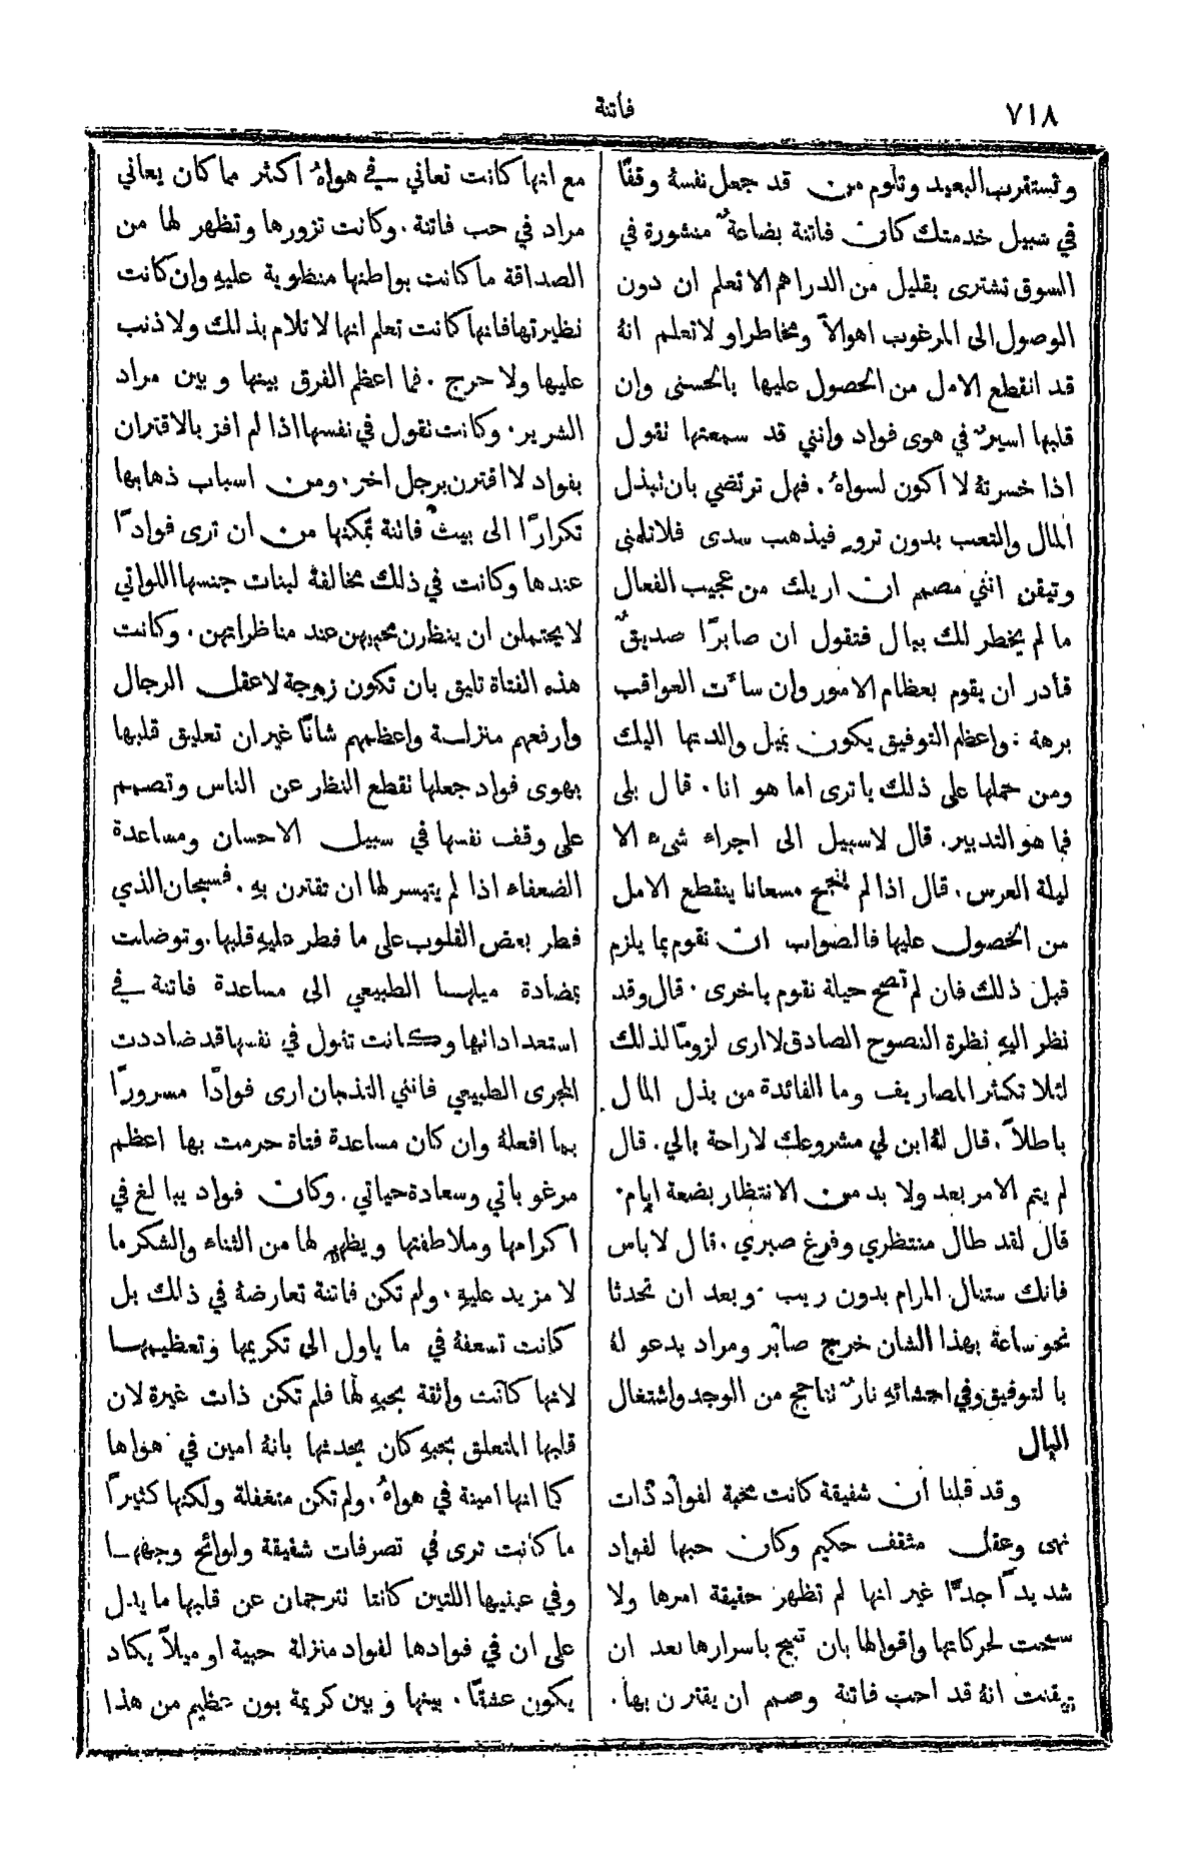 ٧١٨
فاتنة
وتستقرب البعيد وتلوم من قد جعل نفسهُ وقفًا
في سبيل خدمتك كان فاتنة بضاعةٌ منشورة في
السوق تشترى بقليل من الدراهم الا تعلم ان دون
الوصول الى المرغوب اهوالاً ومخاطر او لا تعلم انهُ
قد انقطع الامل من الحصول عليها بالحسنى وان
قلبها اسيرٌ في هوى فواد وانني قد سمعتها تقول
اذا خسرتهُ لا أكون لسواهُ. فهل ترتضي بان تبذل
المال والتعب بدون تروٍ فيذهب سدى فلا تلمني
وتيقن انني مصمم ان اريك من عجيب الفعال
ما لم يخطر لك ببال فتقول ان صابرًا صديقٌ
قادر ان يقوم بعظام الامور وان سائت العواقب
برهة : واعظم التوفيق يكون بميل والدتها اليك
ومن حملها على ذلك يا ترى اما هو انا. قال بلى
فما هو التدبير. قال لاسبيل الى اجراء شيء الا
ليلة العرس. قال اذا لم ينجح مسعانا ينقطع الامل
من الحصول عليها فالصواب ان نقوم بما يلزم
قبل ذلك فان لم تصح حيلة نقوم باخرى. قال وقد
نظر اليهِ نظرة النصوح الصادق لا ارى لزومًا لذلك
لئلا تكثر المصاريف وما الفائدة من بذل المال
باطلاً. قال لهُ ابن لي مشروعك لاراحة بالي. قال
لم يتم الامر بعد ولا بد من الانتظار بضعة ايام.
قال لقد طال منتظري وفرغ صبري. قال لا باس
فانك ستنال المرام بدون ريب. وبعد ان تحدثا
نحو ساعة بهذا الشان خرج صابر ومراد يدعو لهُ
بالتوفيق وفي احشائهِ نارٌ تتاجج من الوجد واشتغال
البال
وقد قلنا ان شفيقة كانت محبة لفواد ذات
نهى وعقل مثقف حكيم وكان حبها لفواد
شديدًا جدًّا غير انها لم تظهر حقيقة امرها ولا
سمحت لحركاتها واقوالها بان تبيح باسرارها بعد ان
تيقنت انهُ قد احب فاتنة وصمم ان يقترن بها.
مع انها كانت تعاني في هواهُ اكثر مما كان يعاني
مراد في حب فاتنة. وكانت تزورها وتظهر لها من
الصداقة ما كانت بواطنها منطوية عليهِ وان كانت
نظيرتها فانها كانت تعلم انها لا تلام بذلك ولا ذنب
عليها ولا حرج. فما اعظم الفرق بينها وبين مراد
الشرير. وكانت تقول في نفسها اذا لم افز بالاقتران
بفواد لا اقترن برجل اخر. ومن اسباب ذهابها
تكرارًا الى بيت فاتنة تمكنها من ان ترى فوادًا
عندها وكانت في ذلك مخالفة لبنات جنسها اللواتي
لا يحتملن ان ينظرن محبيهن عند مناظراتهن. وكانت
هذه الفتاة تليق بان تكون زوجة لاعقل الرجال
وارفعهم منزلة واعظمهم شانًا غير ان تعليق قلبها
بهوى فواد جعلها تقطع النظر عن الناس وتصمم
على وقف نفسها في سبيل الاحسان ومساعدة
الضعفاء اذا لم يتيسر لها ان تقترن بهِ. فسبحان الذي
فطر بعض القلوب على ما فطر عليهِ قلبها. وتوصلت
بمضادة ميلها الطبيعي الى مساعدة فاتنة في
استعداداتها وكانت تقول في نفسها قد ضاددت
المجرى الطبيعي فانني التذ بان ارى فوادًا مسرورًا
بما افعلهُ وان كان مساعدة فتاة حرمت بها اعظم
مرغوباتي وسعادة حياتي. وكان فواد يبالغ في
اكرامها وملاطفتها ويظهر لها من الثناء والشكر ما
لا مزيد عليهِ. ولم تكن فاتنة تعارضهُ في ذلك بل
كانت تسعفهُ في ما ياول الى تكريمها وتعظيمها
لانها كانت واثقة بحبهِ لها فلم تكن ذات غيرة لان
قلبها المتعلق بحبهِ كان يحدثها بانهُ امين في هواها
كما انها امينة في هواهُ. ولم تكن متغفلة ولكنها كثيرًا
ما كانت ترى في تصرفات شفيقة ولوائح وجهها
وفي عينيها اللتين كانتا تترجمان عن قلبها ما يدل
على ان في فوادها لفواد منزلة حبية او ميلاً يكاد
يكون عشقًا. بينها وبين كريمة بون عظيم من هذا